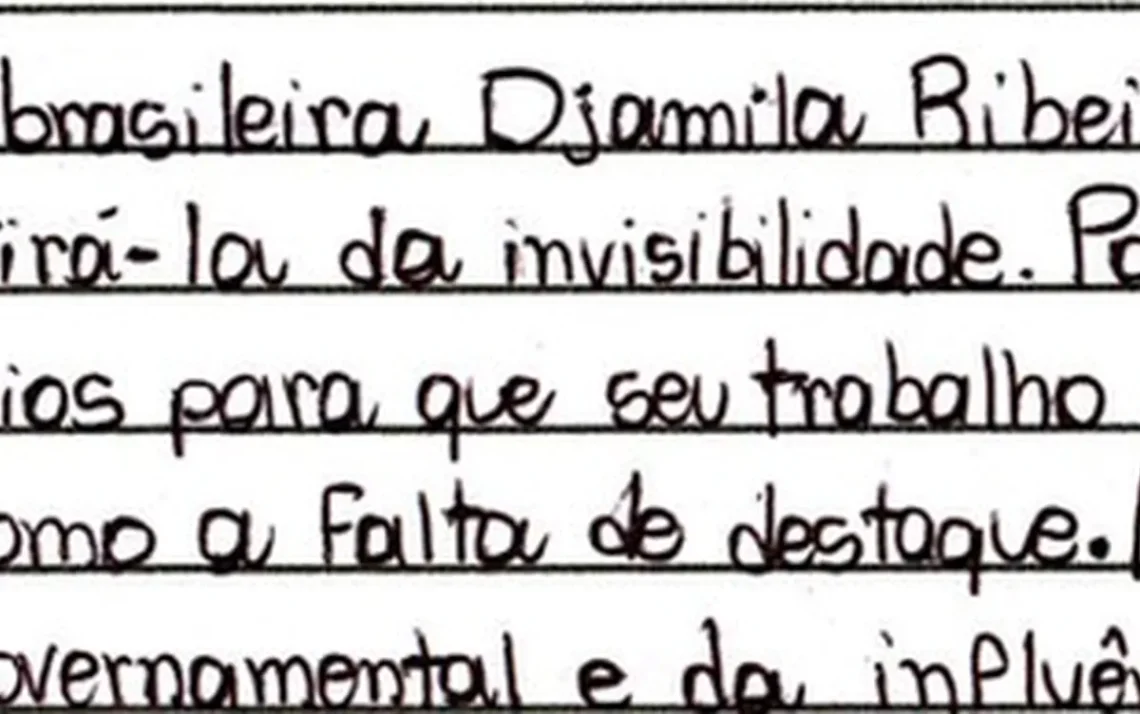 brasileira Djamila Ribei
irá-la da invisibilidade. Pa
ios para que seu trabalho
omo a Falta de destaque.
overnamental e da influê